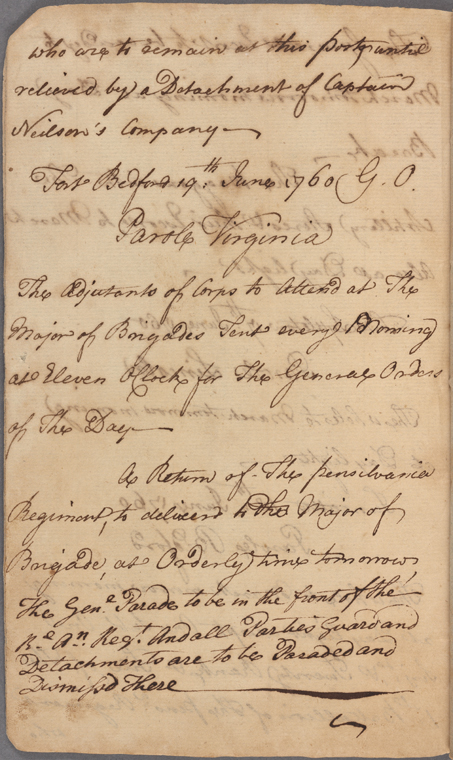 who are to remain at this post, until
relieved by a Detachment of Captain
Neilson's Company —
Fort Bedford 19.th June 1760 G. O.
Parole Virginia
The Adjutants of Corps to Attend at The
Major of Brigades Tent every Morning
at Eleven OClock for The General Orders
of The Day —
A Return of The pensilvania
Regiment, to deliverd to the Major of
Brigade, at Orderly time tomorrow
The Gen.l Parade to be in the front of the
R.l A.n Reg.t And all Parties Guard and
Detachments are to be Paraded and
Dismiss'd There —